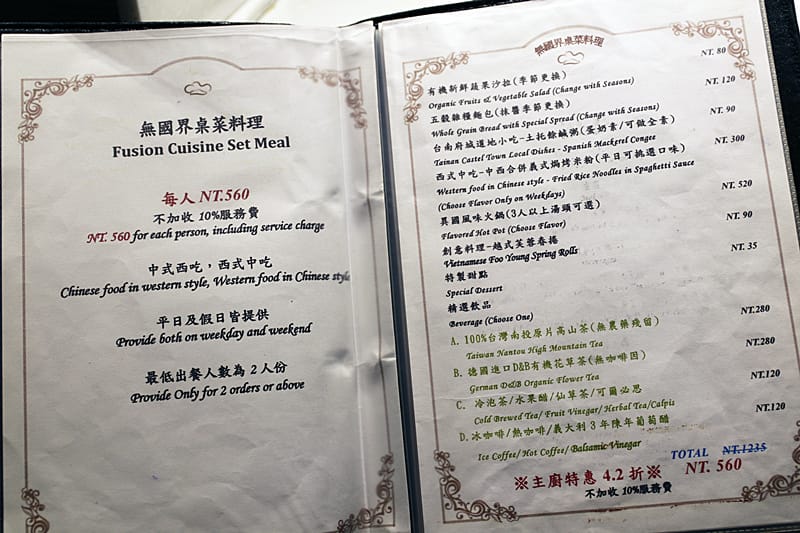 無國界桌菜料理
Fusion Cuisine Set Meal
每人 NT.560
不加收 10%服務費
NT. 560 for each person, including service charge
中式西吃，西式中吃
Chinese food in western style, Western food in Chinese style
平日及假日皆提供
Provide both on weekday and weekend
最低出餐人數為 2 人份
Provide Only for 2 orders or above
無國界桌菜料理
有機新鮮蔬果沙拉(季節更換) NT. 80
Organic Fruits & Vegetable Salad (Change with Seasons)
五穀雜糧麵包(抹醬季節更換) NT. 120
Whole Grain Bread with Special Spread (Change with Seasons)
台南府城道地小吃-土托魠鹹粥(蛋奶素/可做全素) NT. 90
Tainan Castel Town Local Dishes - Spanish Mackerel Congee
西式中吃-中西合併義式焗烤米粉(平日可挑選口味) NT. 300
Western food in Chinese style - Fried Rice Noodles in Spaghetti Sauce
(Choose Flavor Only on Weekdays)
異國風味火鍋(3人以上湯頭可選) NT. 520
Flavored Hot Pot (Choose Flavor)
創意料理-越式芙蓉春捲 NT. 90
Vietnamese Foo Young Spring Rolls
特製甜點 NT. 35
Special Dessert
精選飲品
Beverage (Choose One)
A. 100%台灣南投原片高山茶(無農藥殘留) NT.280
Taiwan Nantou High Mountain Tea
B. 德國進口D&B有機花草茶(無咖啡因) NT.280
German D&B Organic Flower Tea
C. 冷泡茶/水果醋/仙草茶/可爾必思 NT.120
Cold Brewed Tea/ Fruit Vinegar/ Herbal Tea/Calpis
D.冰咖啡/熱咖啡/義大利 3 年陳年葡萄醋 NT.120
Ice Coffee/ Hot Coffee/ Balsamic Vinegar
TOTAL NT.1235
※主廚特惠 4.2 折※ NT. 560
不加收 10%服務費